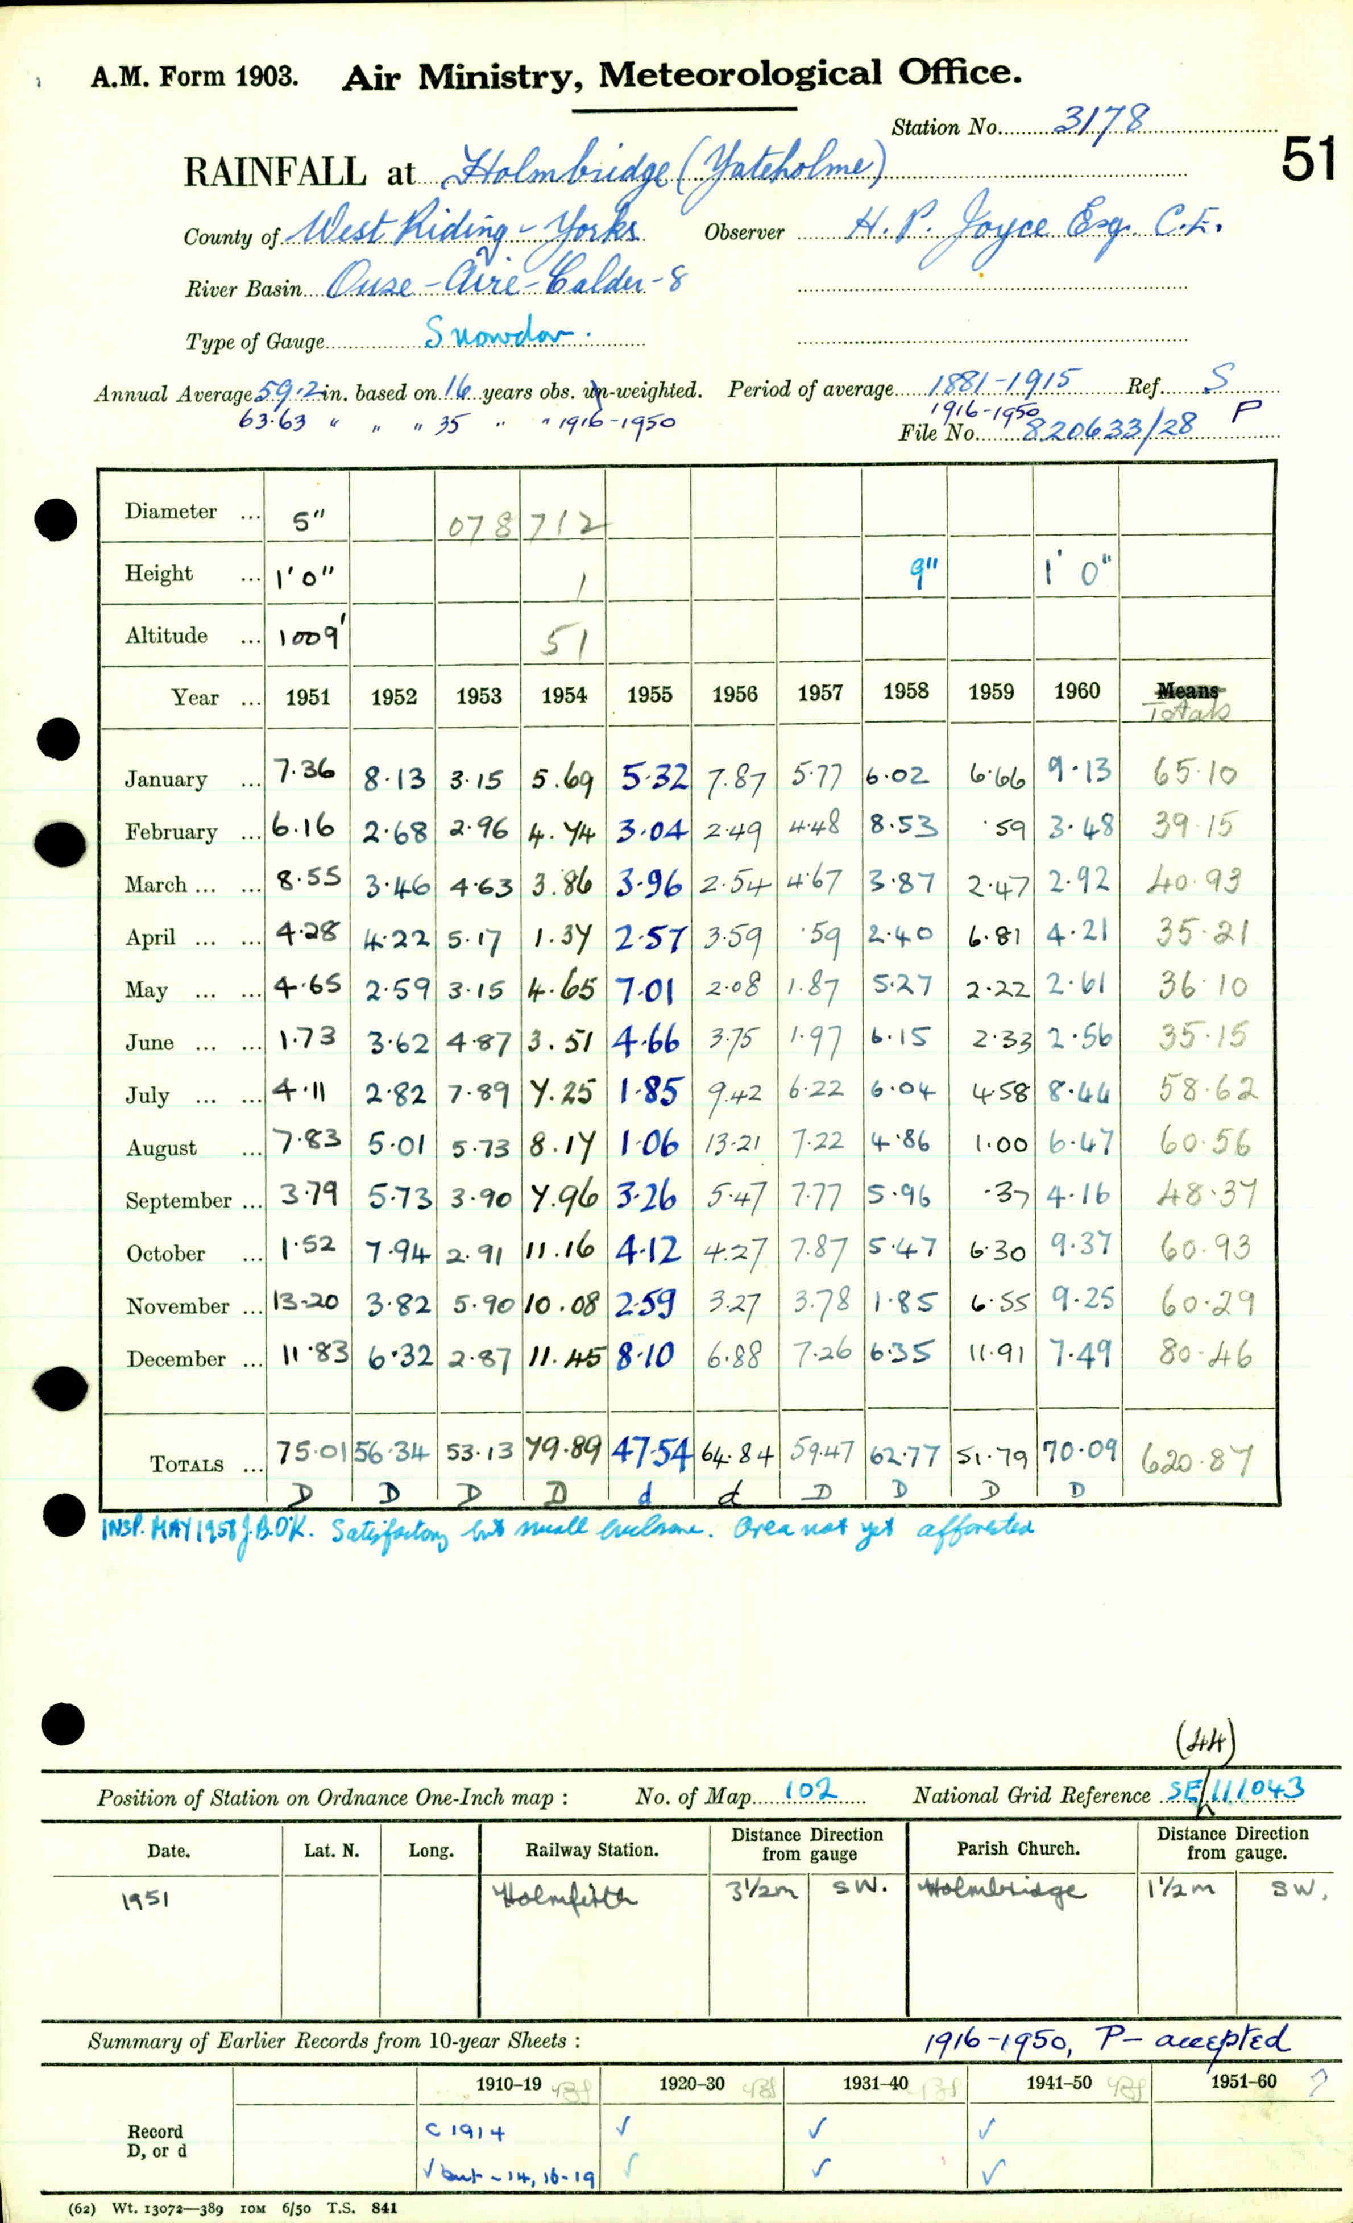 A.M. Form 1903. Air Ministry, Meteorological Office.
Station No. 3178
51
RAINFALL at Holmbridge (Yateholme)
County of West Riding - Yorks Observer H. P. Joyce Esq. C.E.
River Basin Ouse - Aire - Calder - 8
Type of Gauge Snowdon.
Annual Average 59.2 in. based on 16 years obs. un-weighted. Period of average 1881-1915 Ref. S
63.63 " " " 35 " " 1916-1950 1916-1950 P
File No. 820633/28
Diameter ... 5" 078712
Height ... 1'0" 1 9" 1' 0"
Altitude ... 1009' 51
Year ... 1951 1952 1953 1954 1955 1956 1957 1958 1959 1960 Means
Totals
January ... 7.36 8.13 3.15 5.69 5.32 7.87 5.77 6.02 6.66 9.13 65.10
February ... 6.16 2.68 2.96 4.74 3.04 2.49 4.48 8.53 .59 3.48 39.15
March ... ... 8.55 3.46 4.63 3.86 3.96 2.54 4.67 3.87 2.47 2.92 40.93
April ... ... 4.28 4.22 5.17 1.37 2.57 3.59 .59 2.40 6.81 4.21 35.21
May ... ... 4.65 2.59 3.15 4.65 7.01 2.08 1.87 5.27 2.22 2.61 36.10
June ... ... 1.73 3.62 4.87 3.51 4.66 3.75 1.97 6.15 2.33 2.56 35.15
July ... ... 4.11 2.82 7.89 7.25 1.85 9.42 6.22 6.04 4.58 8.44 58.62
August ... 7.83 5.01 5.73 8.17 1.06 13.21 7.22 4.86 1.00 6.47 60.56
September ... 3.79 5.73 3.90 7.96 3.26 5.47 7.77 5.96 .37 4.16 48.37
October ... 1.52 7.94 2.91 11.16 4.12 4.27 7.87 5.47 6.30 9.37 60.93
November ... 13.20 3.82 5.90 10.08 2.59 3.27 3.78 1.85 6.55 9.25 60.29
December ... 11.83 6.32 2.87 11.45 8.10 6.88 7.26 6.35 11.91 7.49 80.46
TOTALS ... 75.01 56.34 53.13 79.89 47.54 64.84 59.47 62.77 51.79 70.09 620.87
D D D D d d D D D D
INSP. MAY 1958 J.B.O'K. Satisfactory but small enclosure. Area not yet afforested
(44)
Position of Station on Ordnance One-Inch map : No. of Map 102 National Grid Reference SE/111043
Date. Lat. N. Long. Railway Station. Distance from gauge Direction Parish Church. Distance from gauge. Direction
1951 Holmfirth 3½m SW. Holmbridge 1½m SW.
Summary of Earlier Records from 10-year Sheets : 1916-1950, P - accepted
1910-19 1920-30 1931-40 1941-50 1951-60 ?
Record C 1914 ✓ ✓ ✓
D, or d ✓ but - 14, 16-19 ✓ ✓ ✓
(62) Wt. 13072—389 10M 6/50 T.S. 841